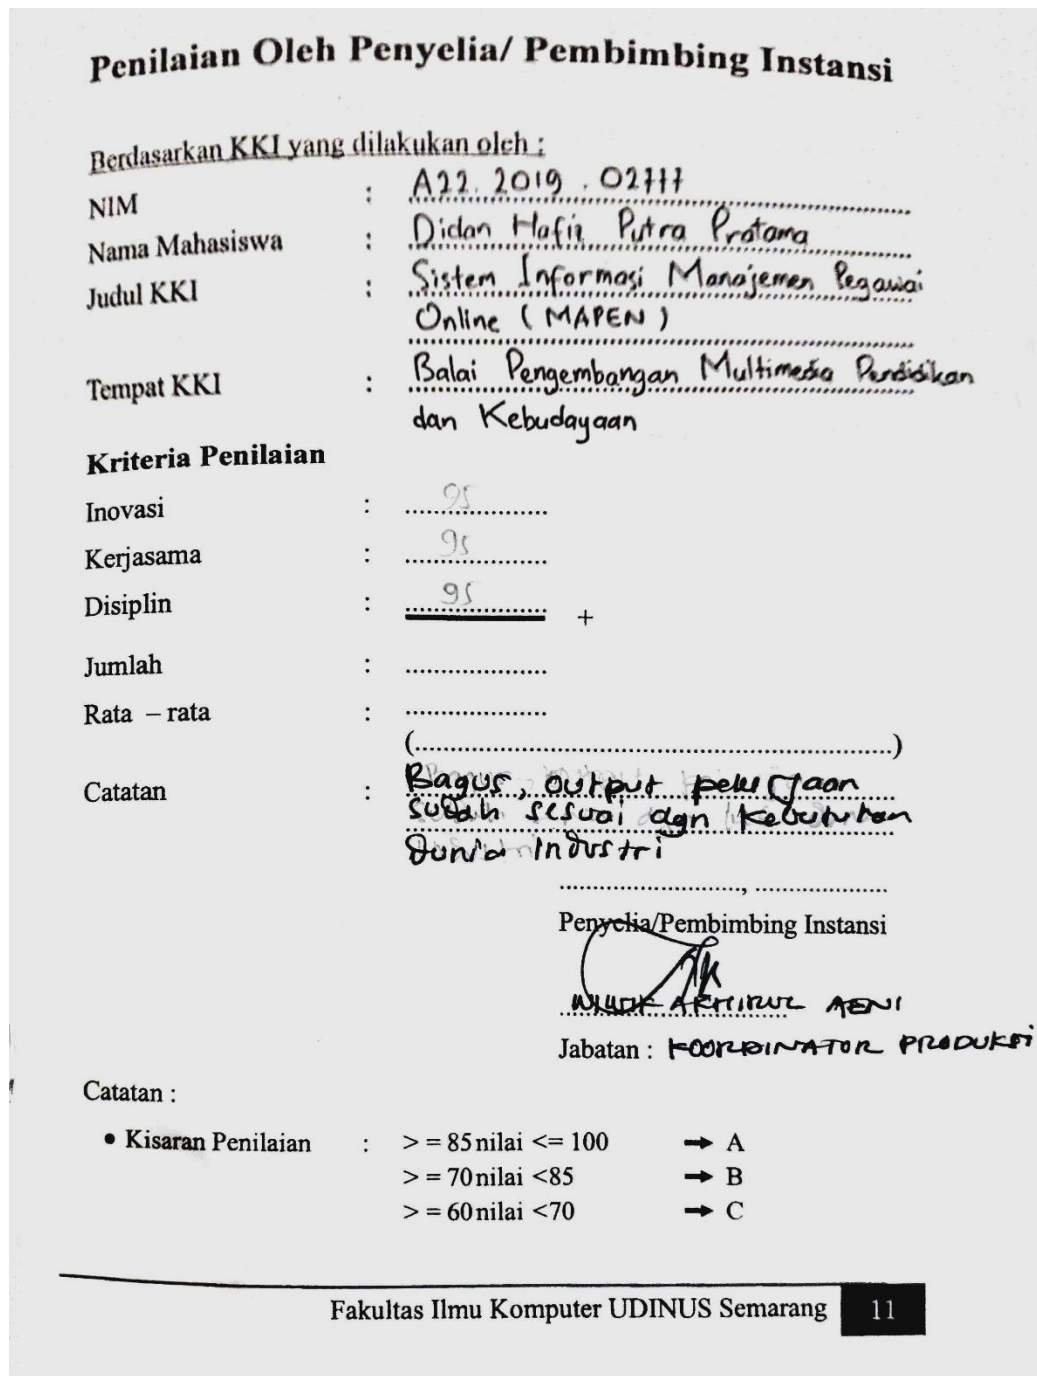 Penilaian Oleh Penyelia/ Pembimbing Instansi
Berdasarkan KKI yang dilakukan oleh :
NIM : A22. 2019 . 02777
Nama Mahasiswa : Didan Hafiz Putra Pratama
Judul KKI : Sistem Informasi Manajemen Pegawai
Online ( MAPEN )
Tempat KKI : Balai Pengembangan Multimedia Pendidikan
dan Kebudayaan
Kriteria Penilaian
Inovasi : 95
Kerjasama : 95
Disiplin : 95 +
Jumlah : ....................
Rata – rata : ....................
(....................................................................)
Catatan : Bagus, output pekerjaan
sudah sesuai dgn kebutuhan
Dunia Industri
.........................., ...................
Penyelia/Pembimbing Instansi
AKHIRUL AENI
Jabatan : KOORDINATOR PRODUKSI
Catatan :
• Kisaran Penilaian : > = 85 nilai <= 100 → A
> = 70 nilai <85 → B
> = 60 nilai <70 → C
Fakultas Ilmu Komputer UDINUS Semarang 11